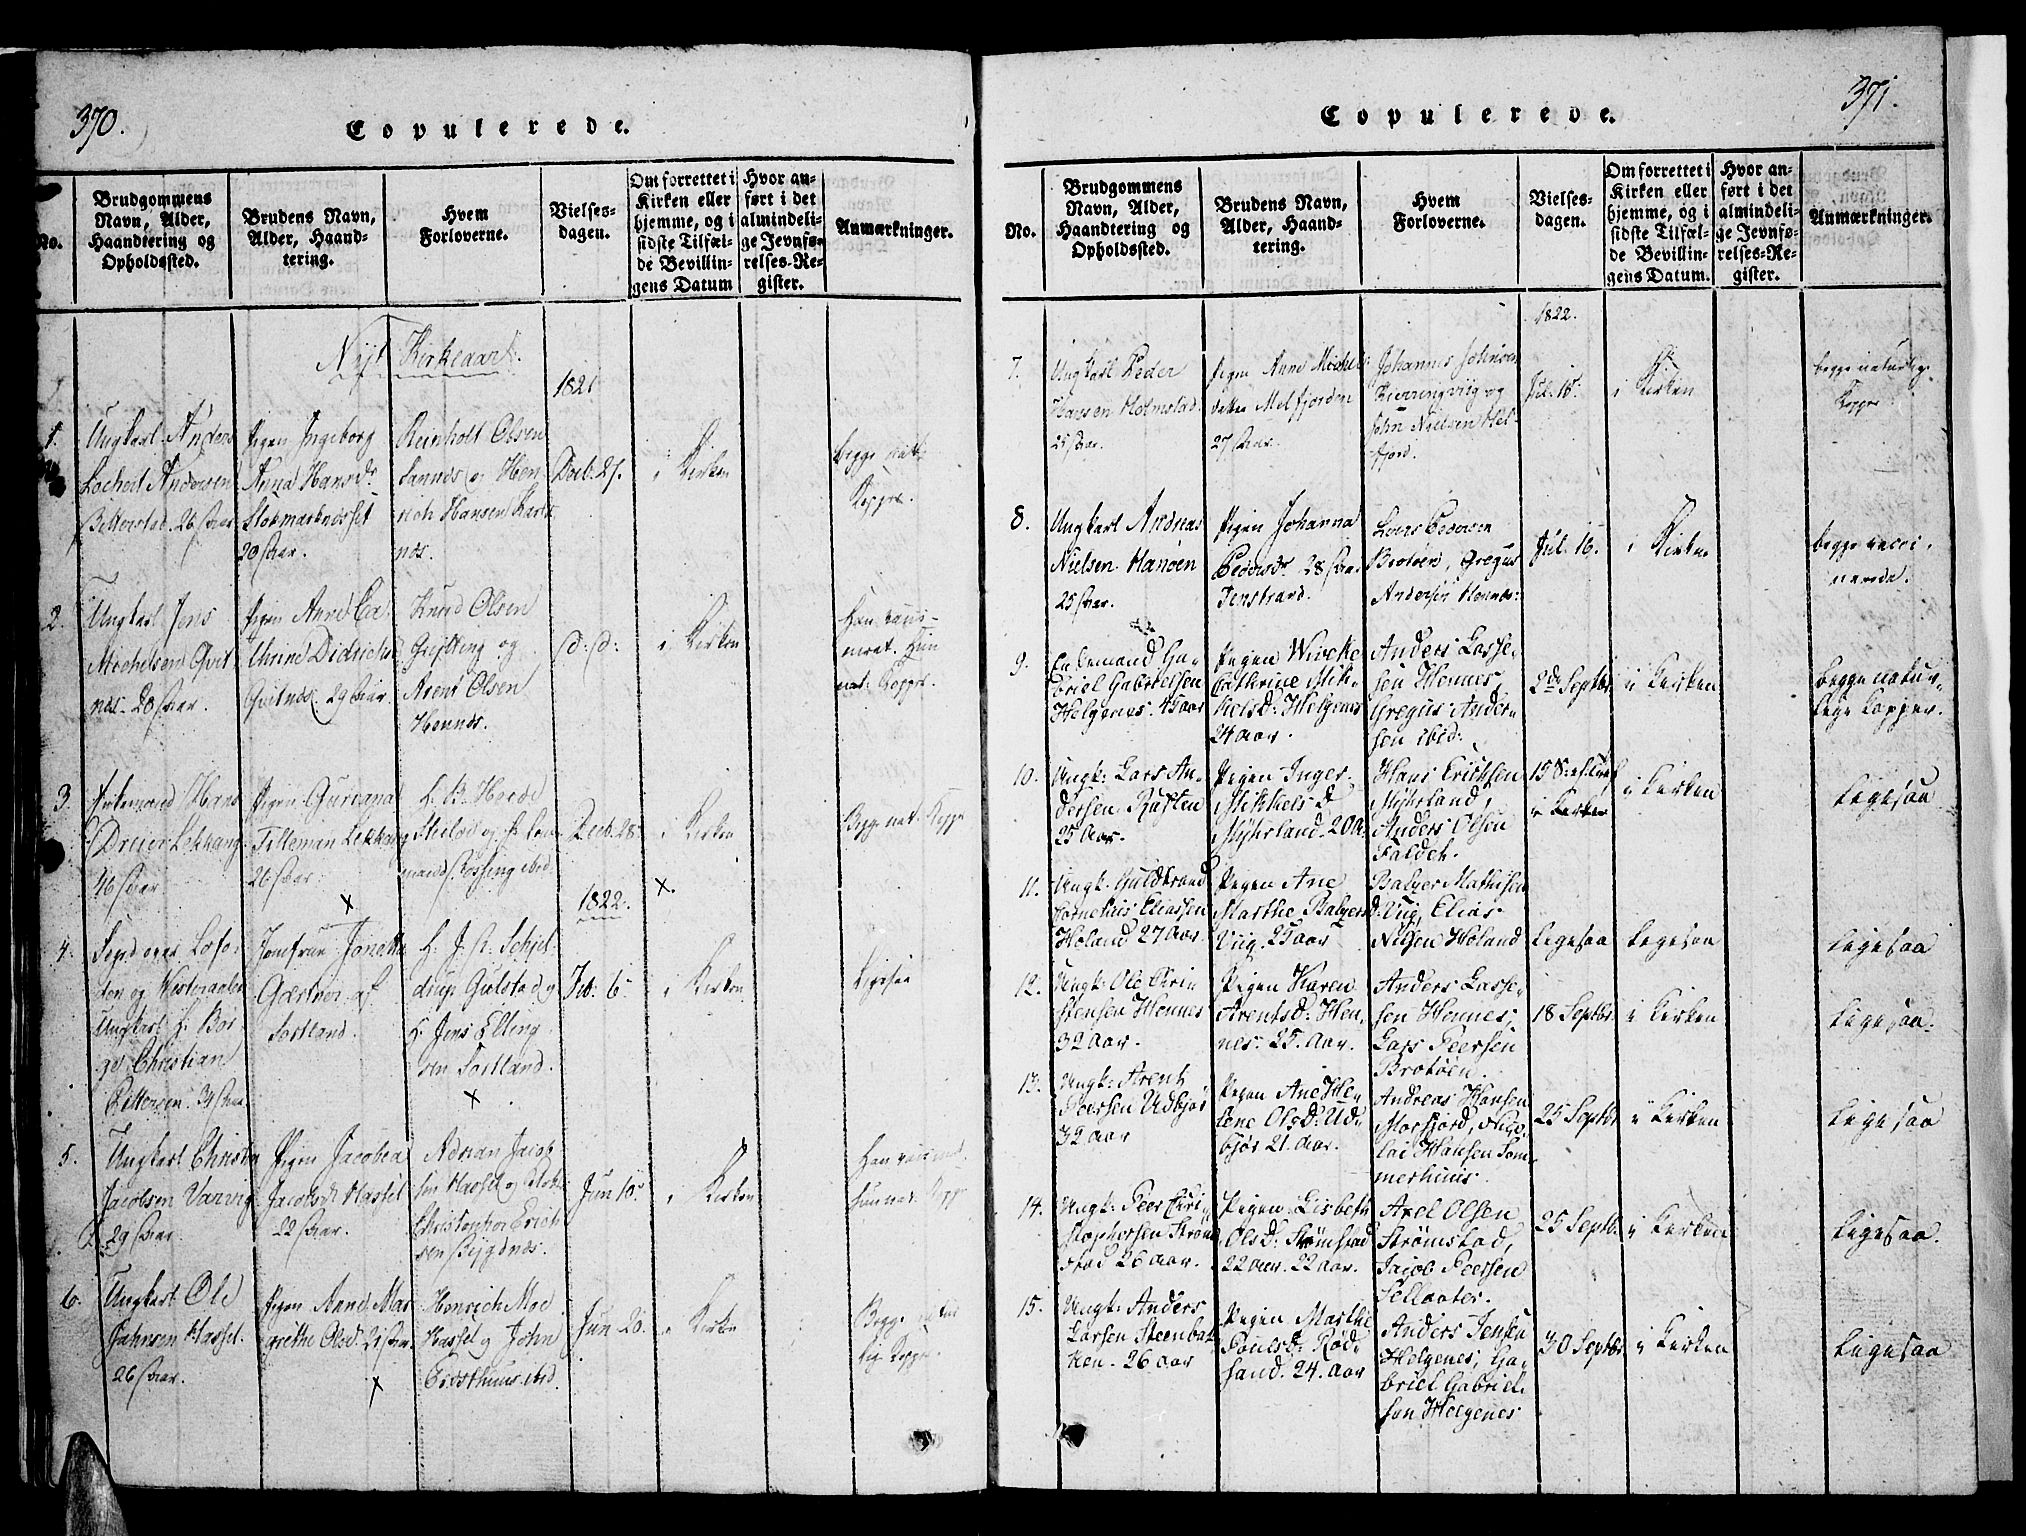 370.
Copulerede.
No.
Brudgommens
Navn, Alder,
Haandtering og
Opholdssted.
Brudens Navn,
Alder, Haand-
tering.
Hvem
Forloverne.
Vielses-
dagen.
Om forrettet i
Kirken eller
hjemme, og i
sidste Tilfæl-
de Bevillin-
gens Datum
Hvor an-
ført i det
almindeli-
ge Jevnfø-
relses-Re-
gister.
Anmærkninger.
Nyt Kirkeaar.
1821
1.
Ungkarl Anders
Lochert Andersen
Bitterstad. 26 Aar
Pigen Ingeborg
Anna Hansdr
Stokmarknæsset
20 Aar.
Reinholt Olsen
Sannes og Hen-
rich Hansen
Decb. 27.
i Kirken
begge nat:
Kopper.
2.
Ungkarl Jens
Michelsen Qvit
nes. 20 Aar.
Pigen Anne Ca
thrine Didrichs
Qvitnes. 29 Aar
Knud Olsen
og
Arent Olsen
Hennes.
d: d:
i Kirken
Han vacci-
neret. Hun
nat: Kopper.
3.
Enkemand Hans
Dreier Lekvang
46 Aar
Pigen Guriana
Tilleman Lekvang
26 Aar.
H. B. Hvede
og
Decb. 28.
i Kirken
Begge nat: Koppr
1822.
4.
over Lofo-
den og Westeraalen
Ungkarl H. Bør
ge Christian
Pettersen. 34 Aar
Jomfrue Jonetta
Gæstner af
Sortland.
H. J. R. Schjel
drup Gulstad og
H. Jens Elling
sen Sortland.
Feb: 6
i Kirken
ligesaa
5.
Ungkarl Christen
Jacobsen Varvig
29 Aar.
Pigen Jacobea
Jacobsdr Hassel
22 Aar.
Adrian Jacob
sen Hassel og
Christopher Erich
sen Bygdnes.
Jun 10
i Kirken
Han vaccineret
hun nat. Koppr
6.
Ungkarl Ole
Johnsen Hassel.
26 Aar.
Pigen Anne Mar
grethe Olsd. 21 Aar.
Henrich Moe
Hassel og John
ibid.
Jun 20.
i Kirken
Begge natur
lig Kopper
371.
Copulerede.
No.
Brudgommens
Navn, Alder,
Haandtering og
Opholdssted.
Brudens Navn,
Alder, Haand-
tering.
Hvem
Forloverne.
Vielses-
dagen.
Om forrettet i
Kirken eller
hjemme, og i
sidste Tilfæl-
de Bevillin-
gens Datum.
Hvor an-
ført i det
almindeli-
ge Jevnfø-
relses-Re-
gister.
Anmærkninger.
1822.
7.
Ungkarl Peder
Hansen Holmstad.
25 Aar.
Pigen Anne Michels
datter Melfjorden
27 Aar.
Johannes Johnsen
og
John Nielsen Mel-
fjord.
Jul. 15.
i Kirken
begge naturlige
Kopper
8.
Ungkarl Andreas
Nielsen Hanøen
25 Aar.
Pigen Johanna
Pedersdr. 28 Aar
Jenstrand.
Lars Pedersen
Brotøen, Gregus
Andersen Hennes:
Jul. 16.
i Kirken
begge vacci-
nerede.
9.
Enkemand Ga-
briel Gabrielsen
Helgenes. 45 aar
Pigen Wivcke
Cathrine Mik-
kelsd: Helgenes
24 aar.
Anders Lasse-
sen Hennes,
Gregus Ander-
sen ibid:
2de Septbr.
i Kirken
begge natur-
lige Kopper.
10.
Ungk: Lars An-
dersen Kusten
25 Aar.
Pigen Inger
Mikkels d
Myhrland. 20 A.
Hans Erichsen
Myhrland,
Anders Olsen
Faldet.
15 Septbr
i Kirken
i Kirken
ligesaa
11.
Ungk: Guldbrand
Cornelius Eliassen
Holand 27 Aar
Pigen Ane
Marthe Balzers d:
Viig. 25 aar
Balzer Mathisen
Viig, Elias
Nilsen Holand
ligesaa
ligesaa
ligesaa
12.
Ungk: Ole Chri
stensen Hennes
32 aar.
Pigen Karen
Arentsd: Hen-
nes. 25. Aar.
Anders Lasse-
sen Hennes,
Lars Peersen
Brotøen.
18 Septbr.
i Kirken
ligesaa.
13.
Ungk: Arent
Peersen Udbjør
32 aar
Pigen Ane He-
lene Olsd: Ud-
bjør 21. aar.
Andreas Hansen
Morfjord, Nico-
lai Hansen Som-
merhuus.
25 Septbr
i Kirken
ligesaa
14.
Ungk: Peer Chri-
stophersen Strøm-
stad 26 aar.
Pigen Lisbeth
Olsd: Strømstad
22 aar. 22 aar.
Axel Olsen
Strømstad,
Jacob Peersen
Sellaater.
25 Septb.
i Kirken
ligesaa.
15.
Ungk: Anders
Larsen Steenbak
ken. 26 aar
Pigen Marthe
Poulsd: Rød-
sand. 24. aar
Anders Jensen
Helgenes, Ga-
briel Gabriel-
sen Helgenes
30 Septbr
i Kirken
ligesaa